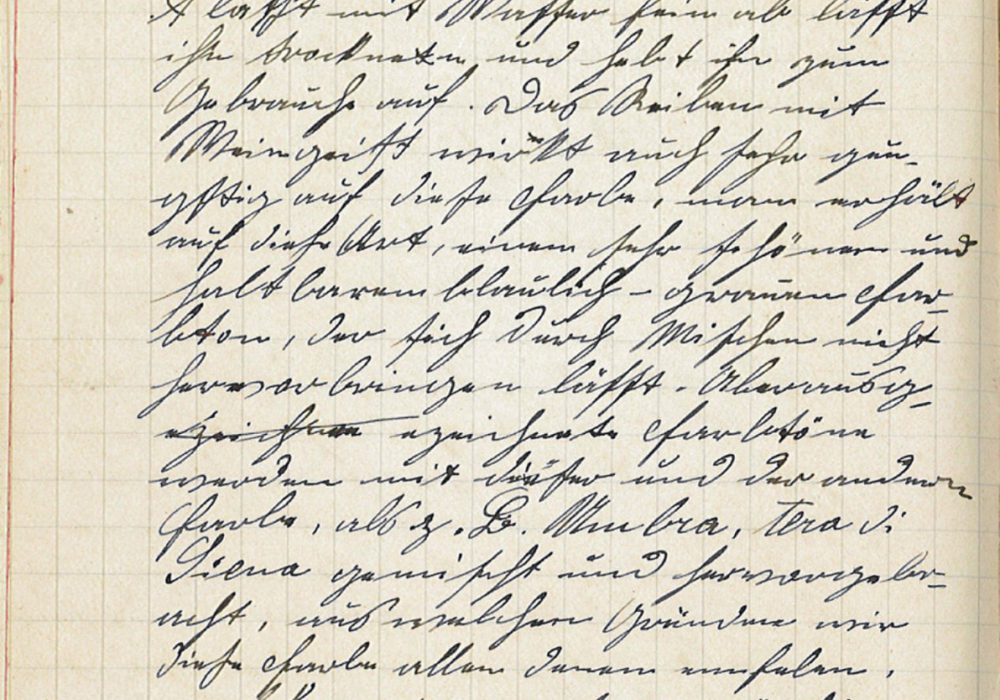 läßt mit Wasser fein ab läßt
ihn trocknen und hebt ihn zum
Gebrauche auf. Das Reiben mit
Weingeist wirkt auch sehr gün-
gstig auf diese Farbe, man erhält
auf diese Art, einem sehr schönen und
haltbarem blaulich-grauen Far-
bton, der sich durch Mischen nicht
hervorbringen läßt. Überausg-
ezeichnete Farbtöne
werden mit dieser und der andern
Farbe, als z. B. Umbra, tera di
Siena gemischt und hervorgebr-
acht, aus welchen Gründen wir
diese Farbe allen denen emfelen.